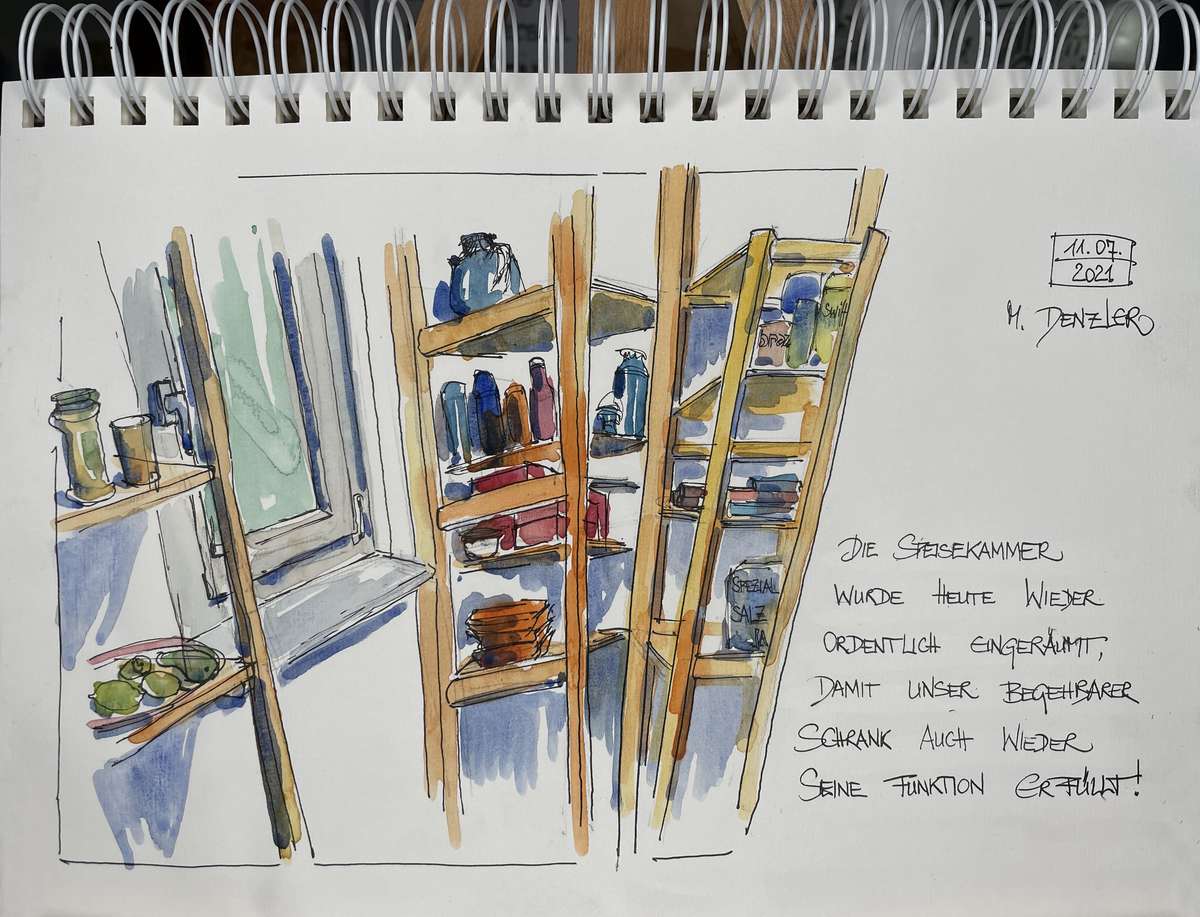 11.07.
2021
M. DENZLER
SPEZIAL
SALZ
DIE SPEISEKAMMER
WURDE HEUTE WIEDER
ORDENTLICH EINGERÄUMT,
DAMIT UNSER BEGEHBARER
SCHRANK AUCH WIEDER
SEINE FUNKTION ERFÜLLT!